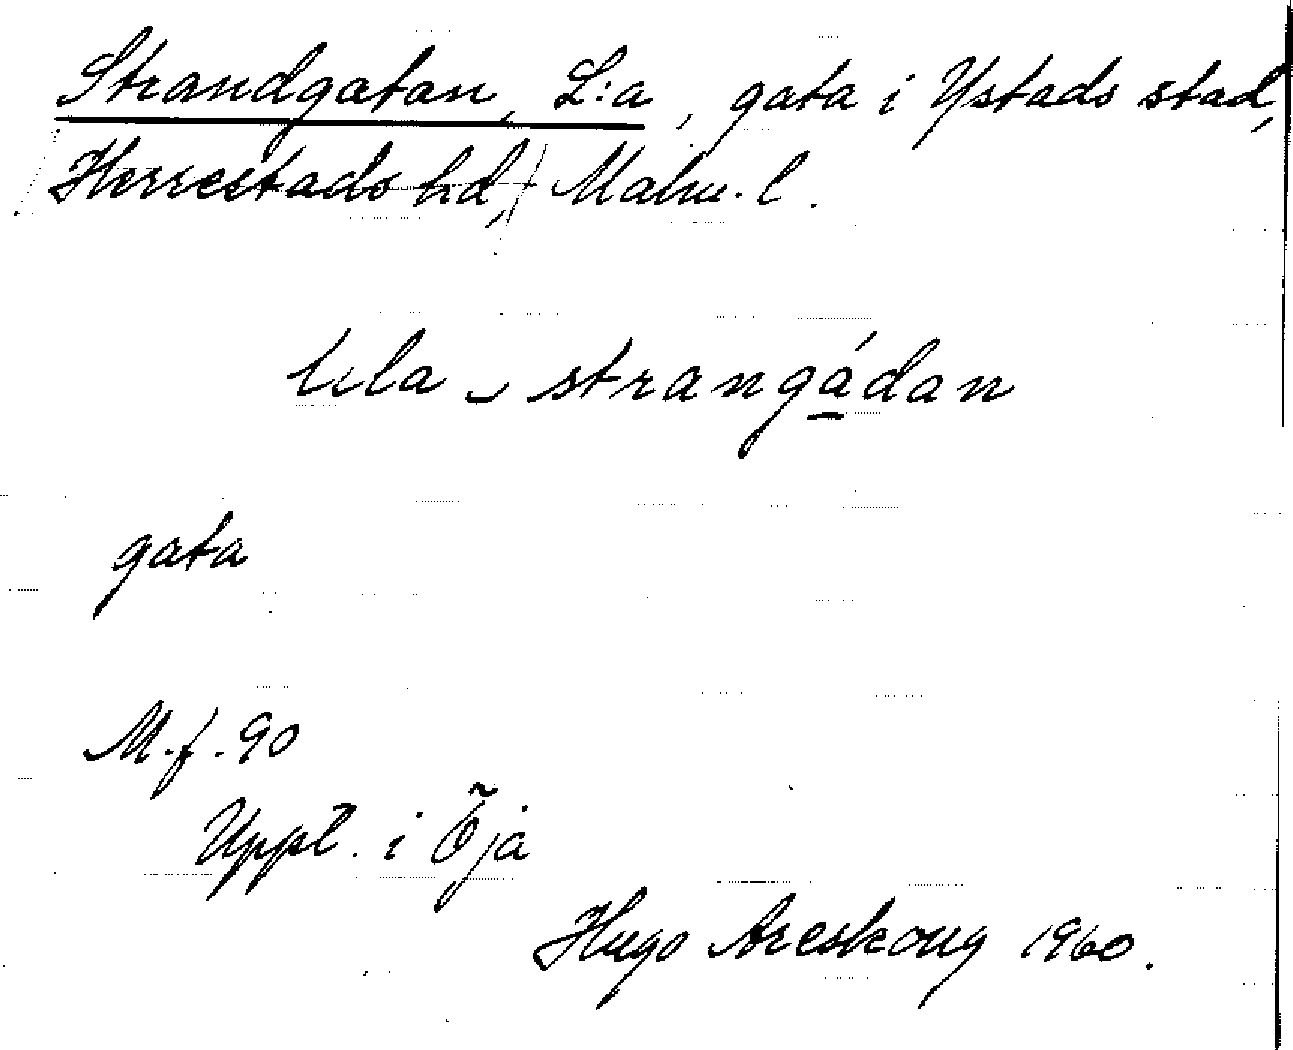 Strandgatan, L:a, gata i Ystads stad,
Herrestads hd, Malm. l.
lila strangádan
gata
M.f. 90
Uppt. i Öja
Hugo Areskoug 1960.